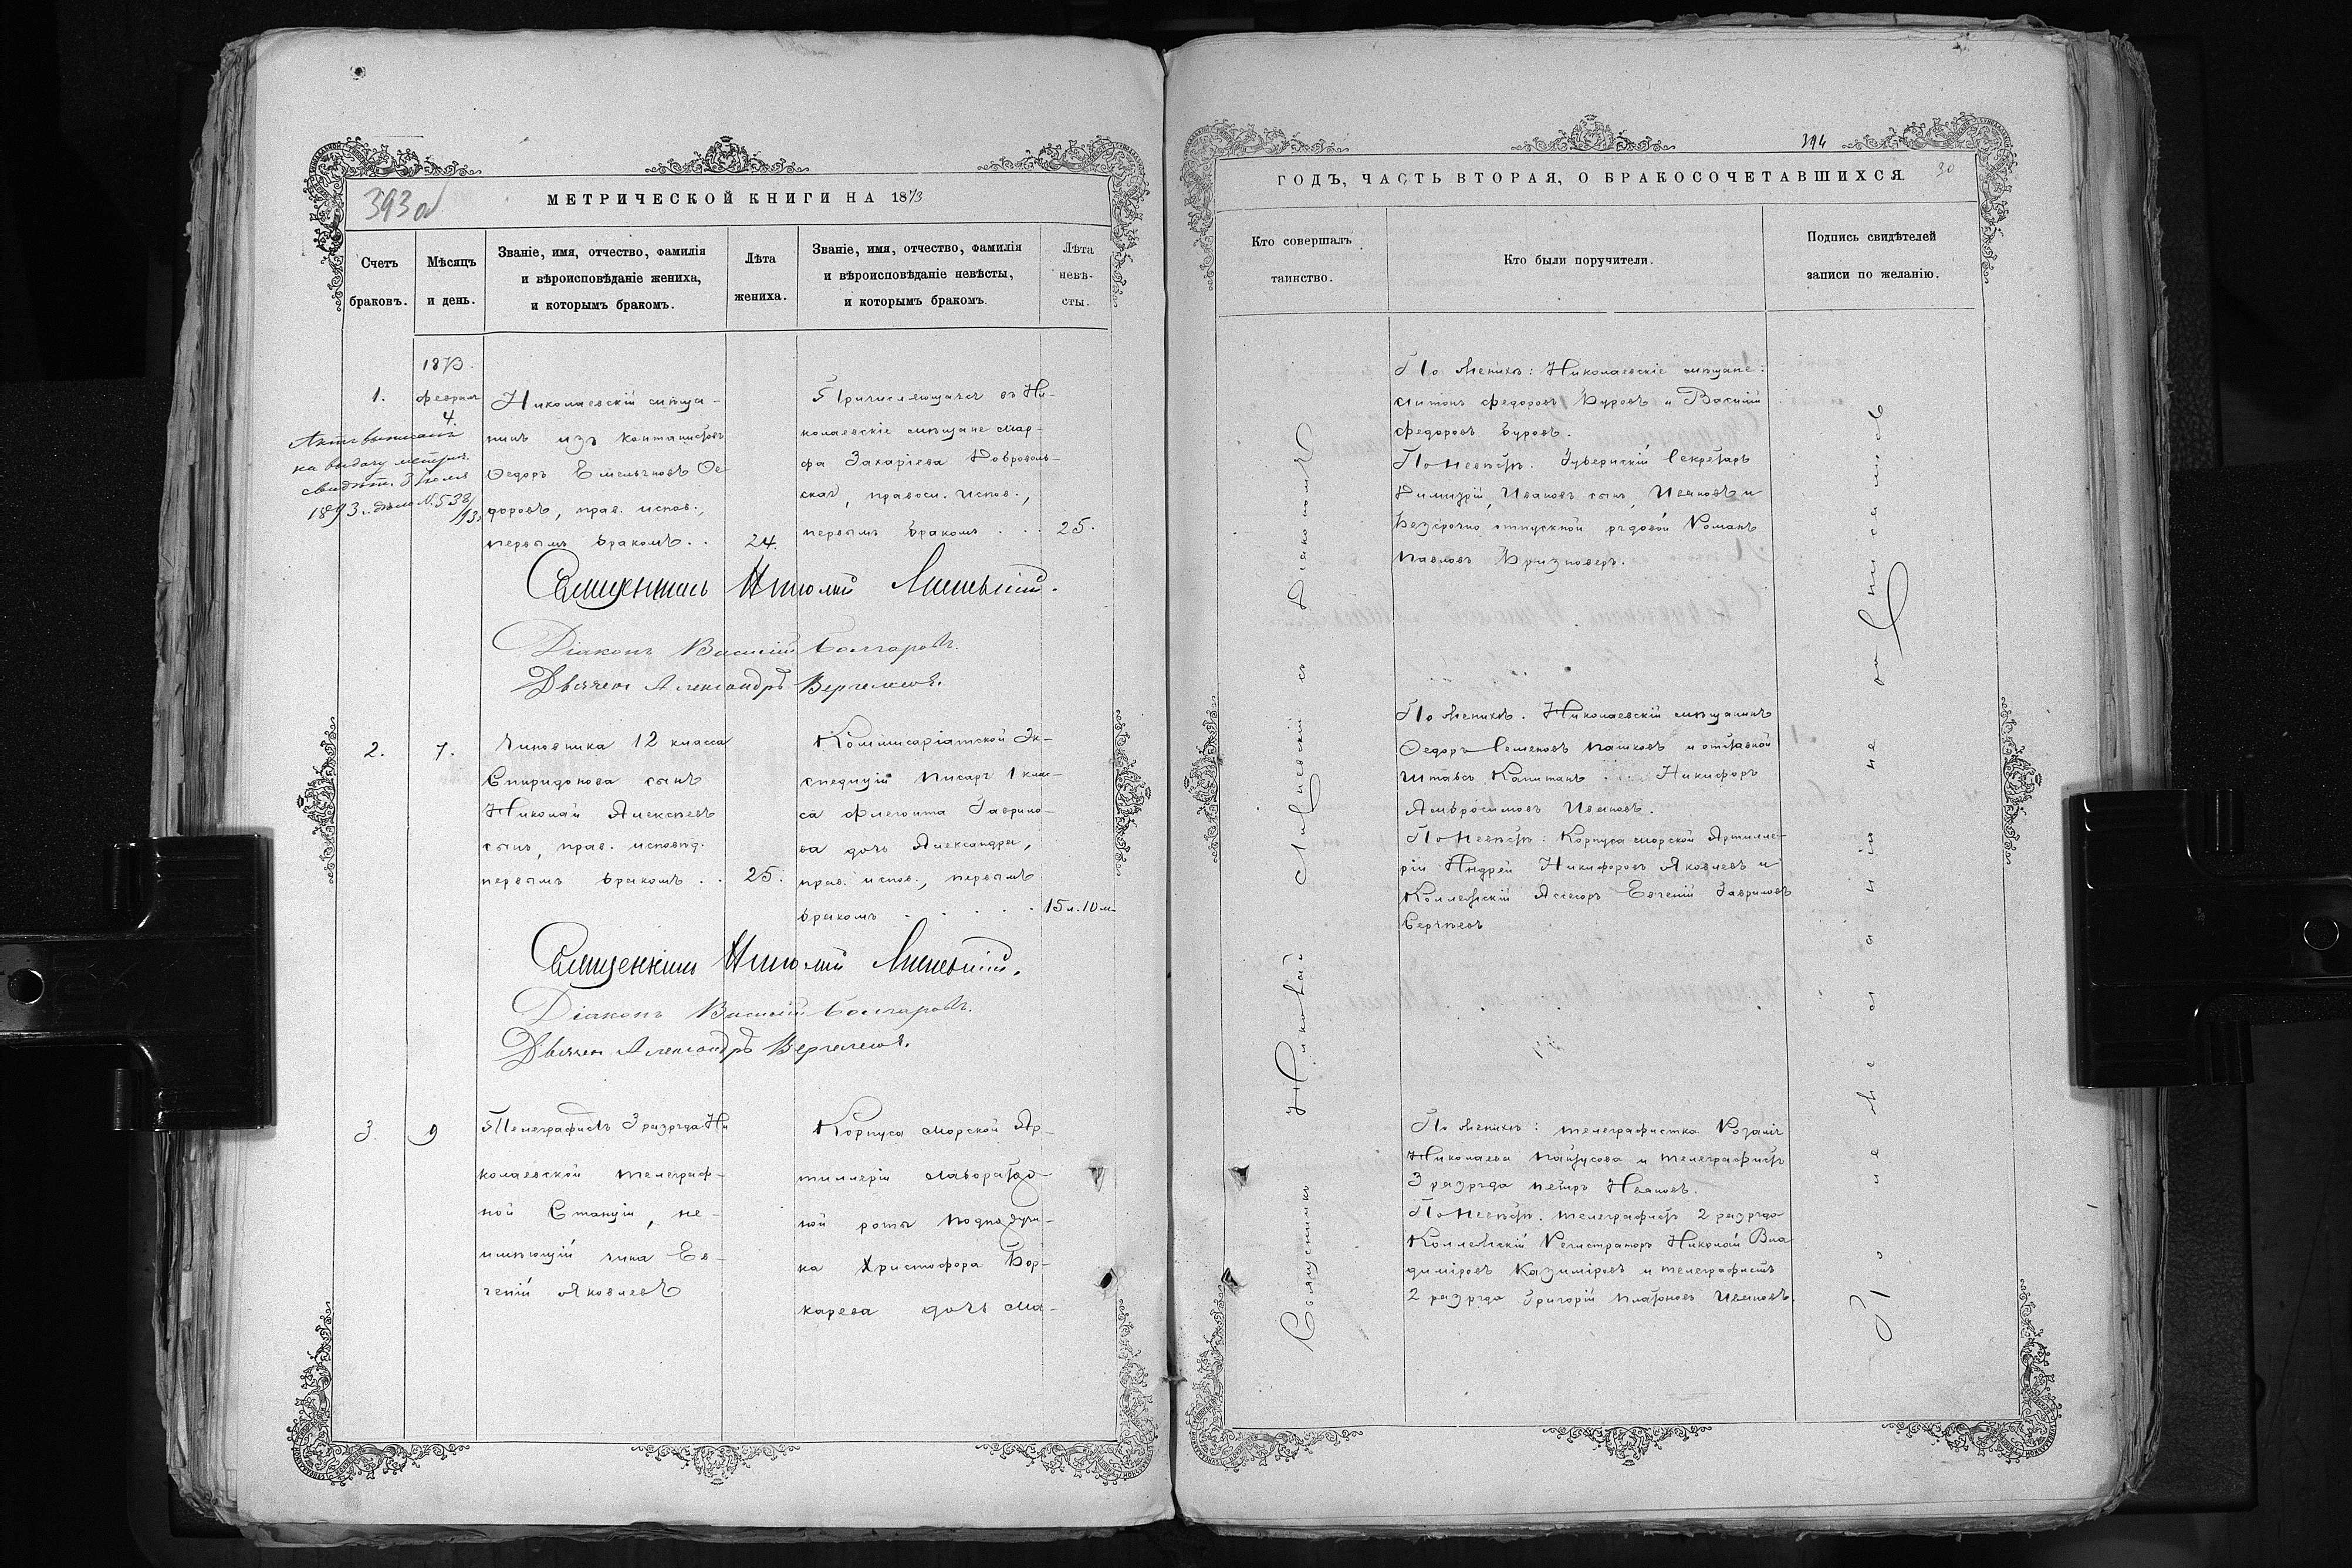 393об
МЕТРИЧЕСКОЙ КНИГИ НА 1873
Счетъ браковъ.
Мѣсяцъ и день.
Званіе, имя, отчество, фамилія
и вѣроисповѣданіе жениха,
и которымъ бракомъ.
Лѣта
жениха.
Званіе, имя, отчество, фамилія
и вѣроисповѣданіе невѣсты,
и которымъ бракомъ.
Лѣта
невѣ-
сты.
1873.
1.
февраля
4.
на выдачу метрич.
свидѣт.
1893. дѣло № 538/93
Николаевскій мѣща-
нинъ изъ кантонистовъ
Ѳедоръ Емельяновъ Ѳе
доровъ, прав. испов.,
первымъ бракомъ . .
24.
Причисляющаяся въ Ни-
колаевскіе мѣщане Мар-
фа Захаріева Доброволь-
ская, правосл. испов.,
первымъ бракомъ . .
25.
Священникъ
Діаконъ Василій Болгаровъ.
Дьячекъ Александръ
2.
7.
Чиновника 12 класса
Спиридонова сынъ
Николай Алексѣевъ
сынъ, прав. исповѣд.
первымъ бракомъ . .
25.
Коммисаріатской Эк-
спедиціи писаря 1 клас-
са Флегонта Гаврило-
ва дочь Александра,
прав. испов., первымъ
бракомъ . . . . .
15 л. 10 м.
Священникъ
Діаконъ Василій Болгаровъ.
Дьячекъ Александръ
3.
9
Телеграфистъ 3 разряда Ни
колаевской телеграф-
ной Станціи, не-
имѣющій чина Ев-
геній Яковлевъ
Корпуса Морской Ар-
тиллеріи Лаборатор-
ной роты
ка Христофора Бор-
карева дочь Ма-
394
30
ГОДЪ, ЧАСТЬ ВТОРАЯ, О БРАКОСОЧЕТАВШИХСЯ.
Кто совершалъ
таинство.
Кто были поручители.
Подпись свидѣтелей
записи по желанію.
Священникъ Николай Ливицкій съ Діакономъ
По женихѣ: Николаевскіе мѣщане:
Антонъ Федоровъ Буровъ и Василій
Федоровъ Буровъ.
По невѣстѣ. Губернскій Секретарь
Димитрій Ивановъ сынъ Ивановъ и
Безсрочно отпускной рядовой Романъ
Павловъ
По женихѣ. Николаевскій мѣщанинъ
Ѳедоръ Семеновъ Пашковъ и отставной
Штабсъ Капитанъ Никифоръ
Амвросимовъ Ивановъ.
По невѣстѣ: Корпуса Морской Артилле-
ріи Андрей Никифоровъ Яковлевъ и
Коллежскій Ассесоръ Евгеній Гавриловъ
Сергѣевъ
По женихѣ: телеграфистка Розалія
Николаева Пайусова и телеграфистъ
3 разряда Петръ Ивановъ.
По невѣстѣ. телеграфистъ 2 разряда
Коллежскій Регистраторъ Николай Вла
диміровъ Казиміровъ и телеграфистъ
2 разряда Григорій Платоновъ Ивановъ.
По не желанію не подписались